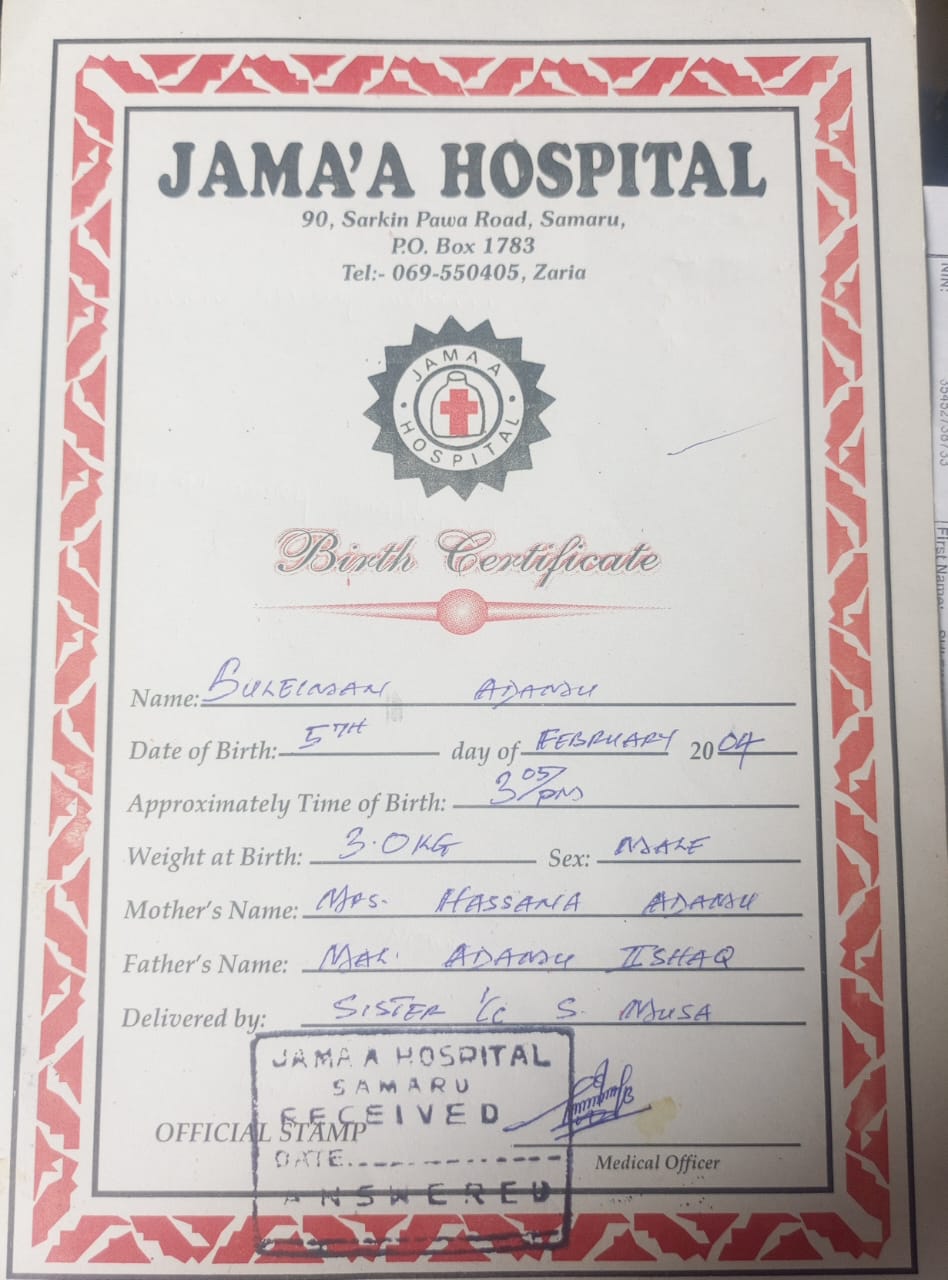 JAMA'A HOSPITAL
90, Sarkin Pawa Road, Samaru,
P.O. Box 1783
Tel:- 069-550405, Zaria
JAMA'A
HOSPITAL
Birth Certificate
Name: SULEIMAN ADAMU
Date of Birth: 5TH day of FEBRUARY 2004
Approximately Time of Birth: 3 05/PM
Weight at Birth: 3.0KG Sex: MALE
Mother's Name: MRS. HASSANA ADAMU
Father's Name: MAL. ADAMU IISHAQ
Delivered by: SISTER I/C S. MUSA
JAMA'A HOSPITAL
SAMARU
RECEIVED
OFFICIAL STAMP
DATE
ANSWERED
Medical Officer
NIN:
First Name: